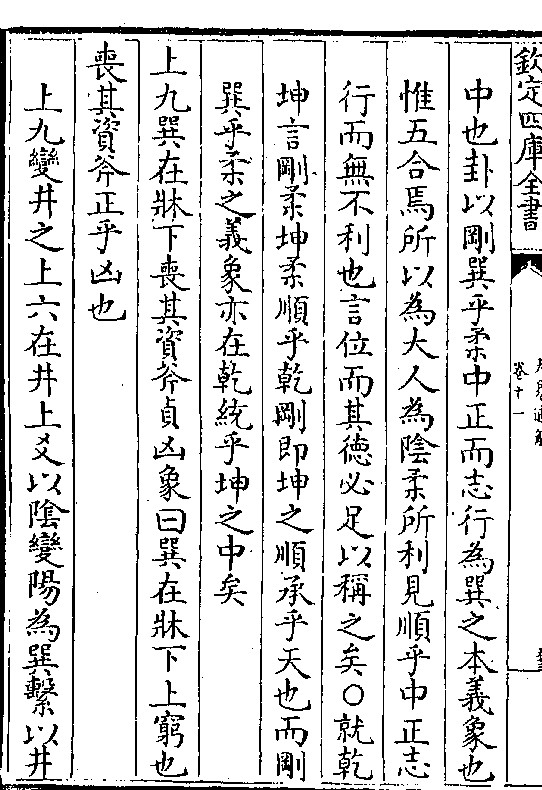 欽定四庫全書
卷十一
中也卦以剛巽乎柔中正而志行為巽之本義象也
惟五合焉所以為大人為陰柔所利見順乎中正志
行而無不利也言位而其德必足以稱之矣○就乾
坤言剛柔坤柔順乎乾剛即坤之順承乎天也而剛
巽乎柔之義象亦在乾統乎坤之中矣
上九巽在牀下喪其資斧貞凶象曰巽在牀下上窮也
喪其資斧正乎凶也
上九變井之上六在井上爻以陰變陽為巽繫以井